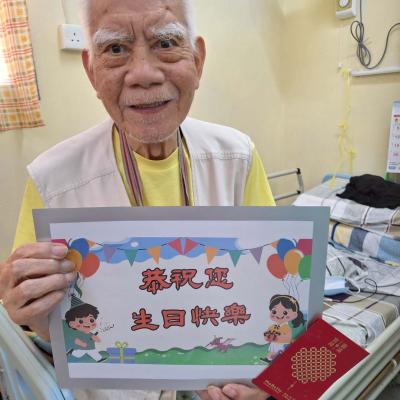 恭祝您
生日快樂